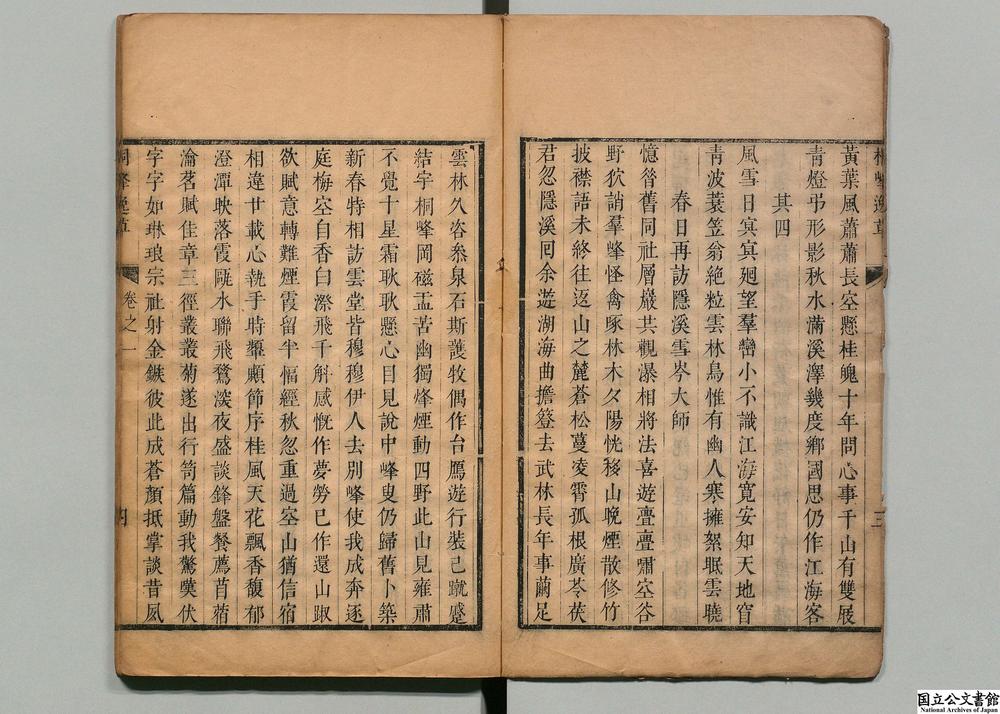 黃葉風蕭蕭長空懸桂魄十年問心事千山有雙屐
青燈弔形影秋水滿溪澤幾度鄉國思仍作江海客
其四
風雪日冥冥廻望羣巒小不識江海寬安知天地窅
青波蓑笠翁絶粒雲林鳥惟有幽人寒擁絮眠雲曉
春日再訪隱溪雪岑大師
憶昝舊同社層巖共觀瀑相將法喜遊亹亹嘯空谷
野狖誚羣峰怪禽啄林木夕陽恍移山晚煙散修竹
披襟語未終往迄山之麓蒼松蔓凌霄孤根廣苓茯
君忽隱溪囘余遊湖海曲擔簦去武林長年事繭足
三
雲林久咨叅泉石斯護牧偶作台鴈遊行裝已蹴蹙
結宇桐峰岡磁盂苦幽獨烽煙動四野此山見雍肅
不覺十星霜耿耿懸心目見說中峰叟仍歸舊卜築
新春特相訪雲堂皆穆穆伊人去別峰使我成奔逐
庭梅空自香白漈飛千斛感慨作夢勞已作還山踧
欲賦意轉難煙霞留半幅經秋忽重過空山猶信宿
相違廿載心執手時顰顣節序桂風天花飄香馥郁
澄潭映落霞颬水聯飛鶩深夜盛談鋒盤餐薦苜蓿
瀹茗賦佳章三徑叢叢菊遂出行笥篇動我驚嘆伏
字字如琳琅宗社射金鏃彼此成蒼顏抵掌談昔夙
桐峰逸草
卷之一
四
国立公文書館
National Archives of Japan